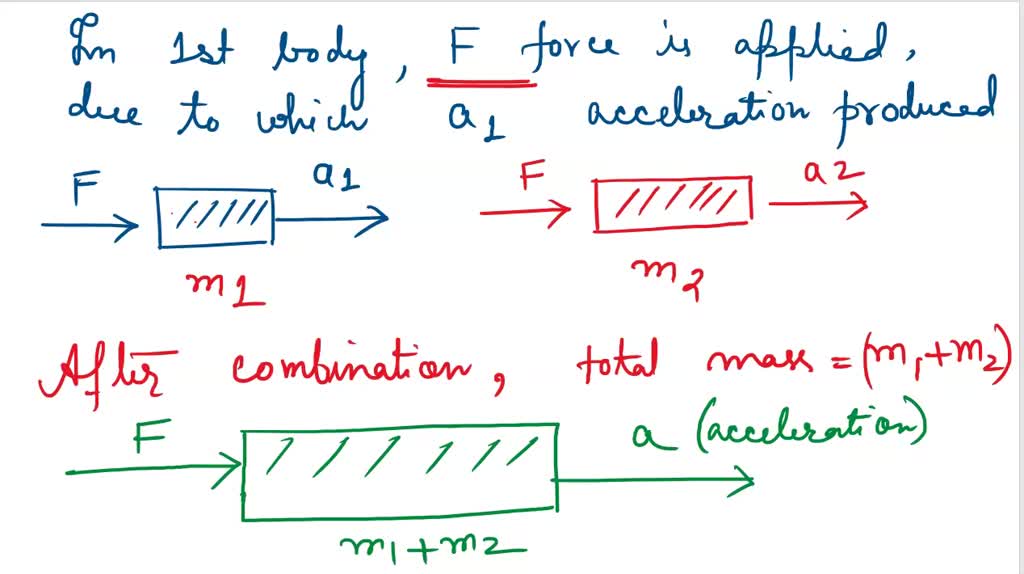 In 1st body, F force is applied,
due to which a1 acceleration produced
F a1 F a2
m1 m2
After combination, total mass = (m1+m2)
F a (acceleration)
m1+m2